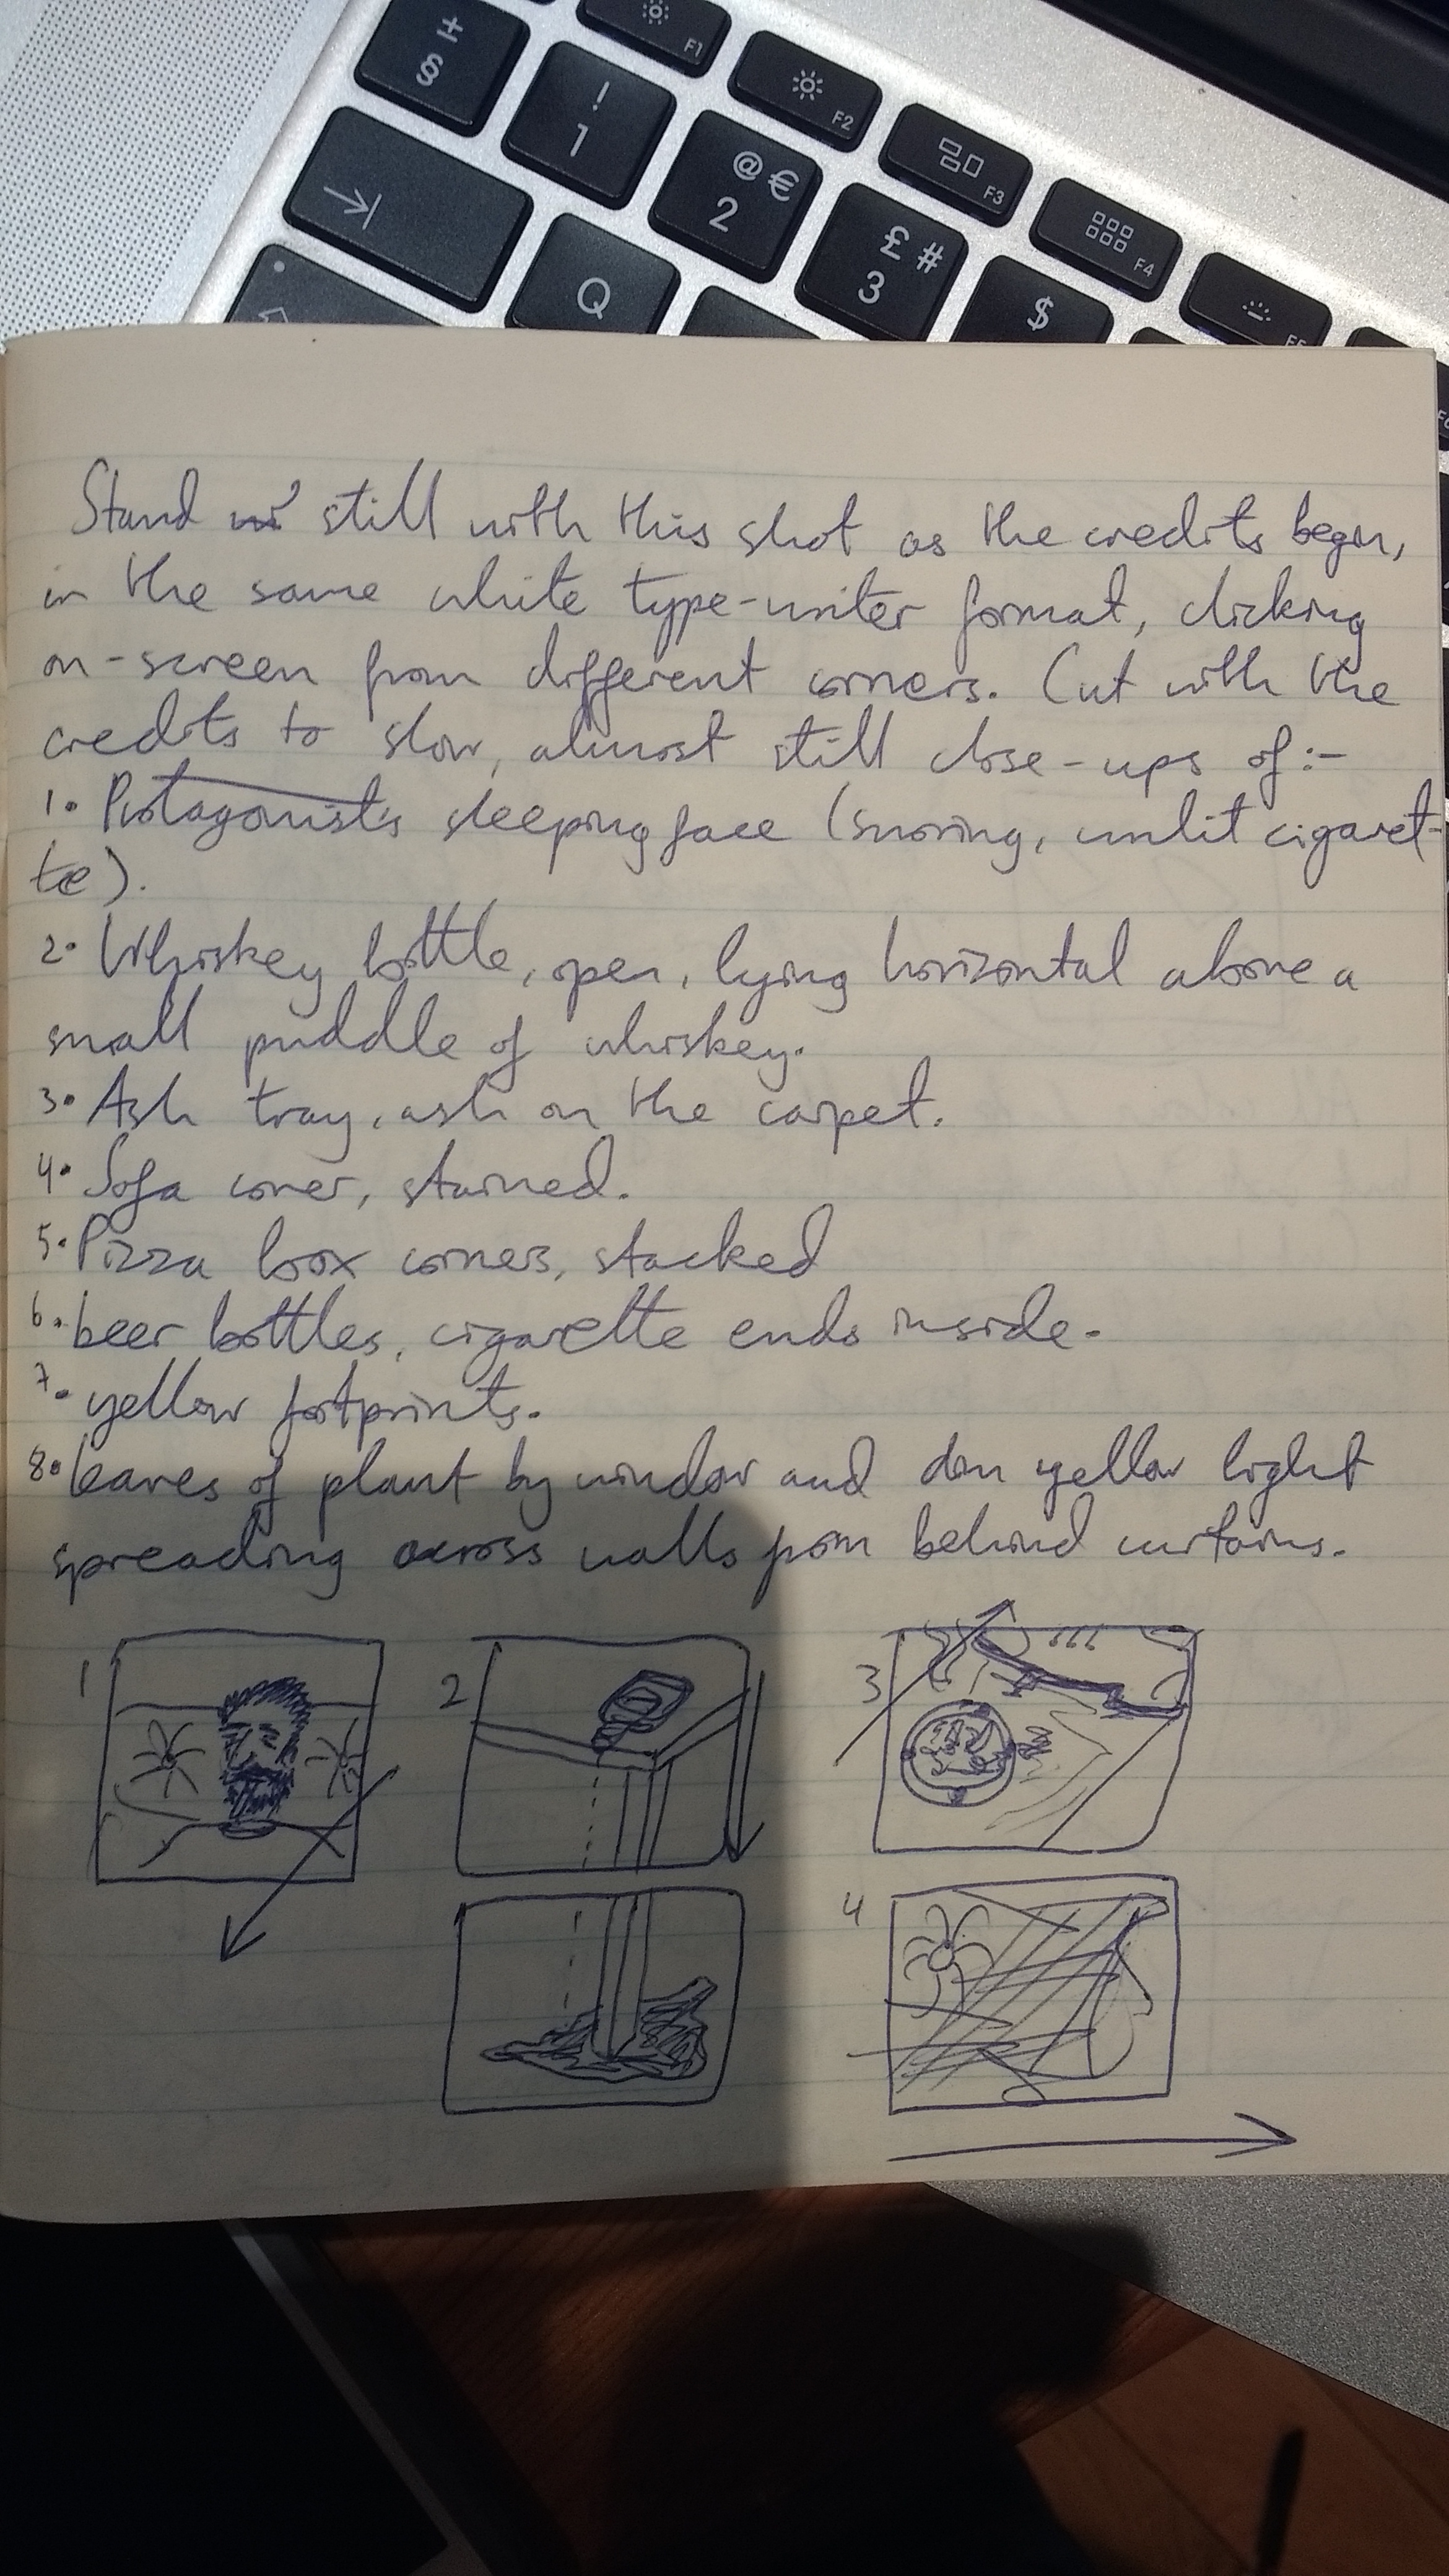 ±
§
!
1
@ €
2
£ #
3
$
Q
F1
F2
F3
F4
F5
Stand still with this shot as the credits begin,
in the same white type-writer format, clicking
on-screen from different corners. Cut with the
credits to slow, almost still close-ups of:-
1. Protagonist's sleeping face (snoring, unlit cigaret-
te).
2. Whiskey bottle, open, lying horizontal above a
small puddle of whiskey.
3. Ash tray, ash on the carpet.
4. Sofa cover, stained.
5. Pizza box corners, stacked
6. beer bottles, cigarette ends inside.
7. yellow footprints.
8. leaves of plant by window and dim yellow light
spreading across walls from behind curtains.
1
2
3
4